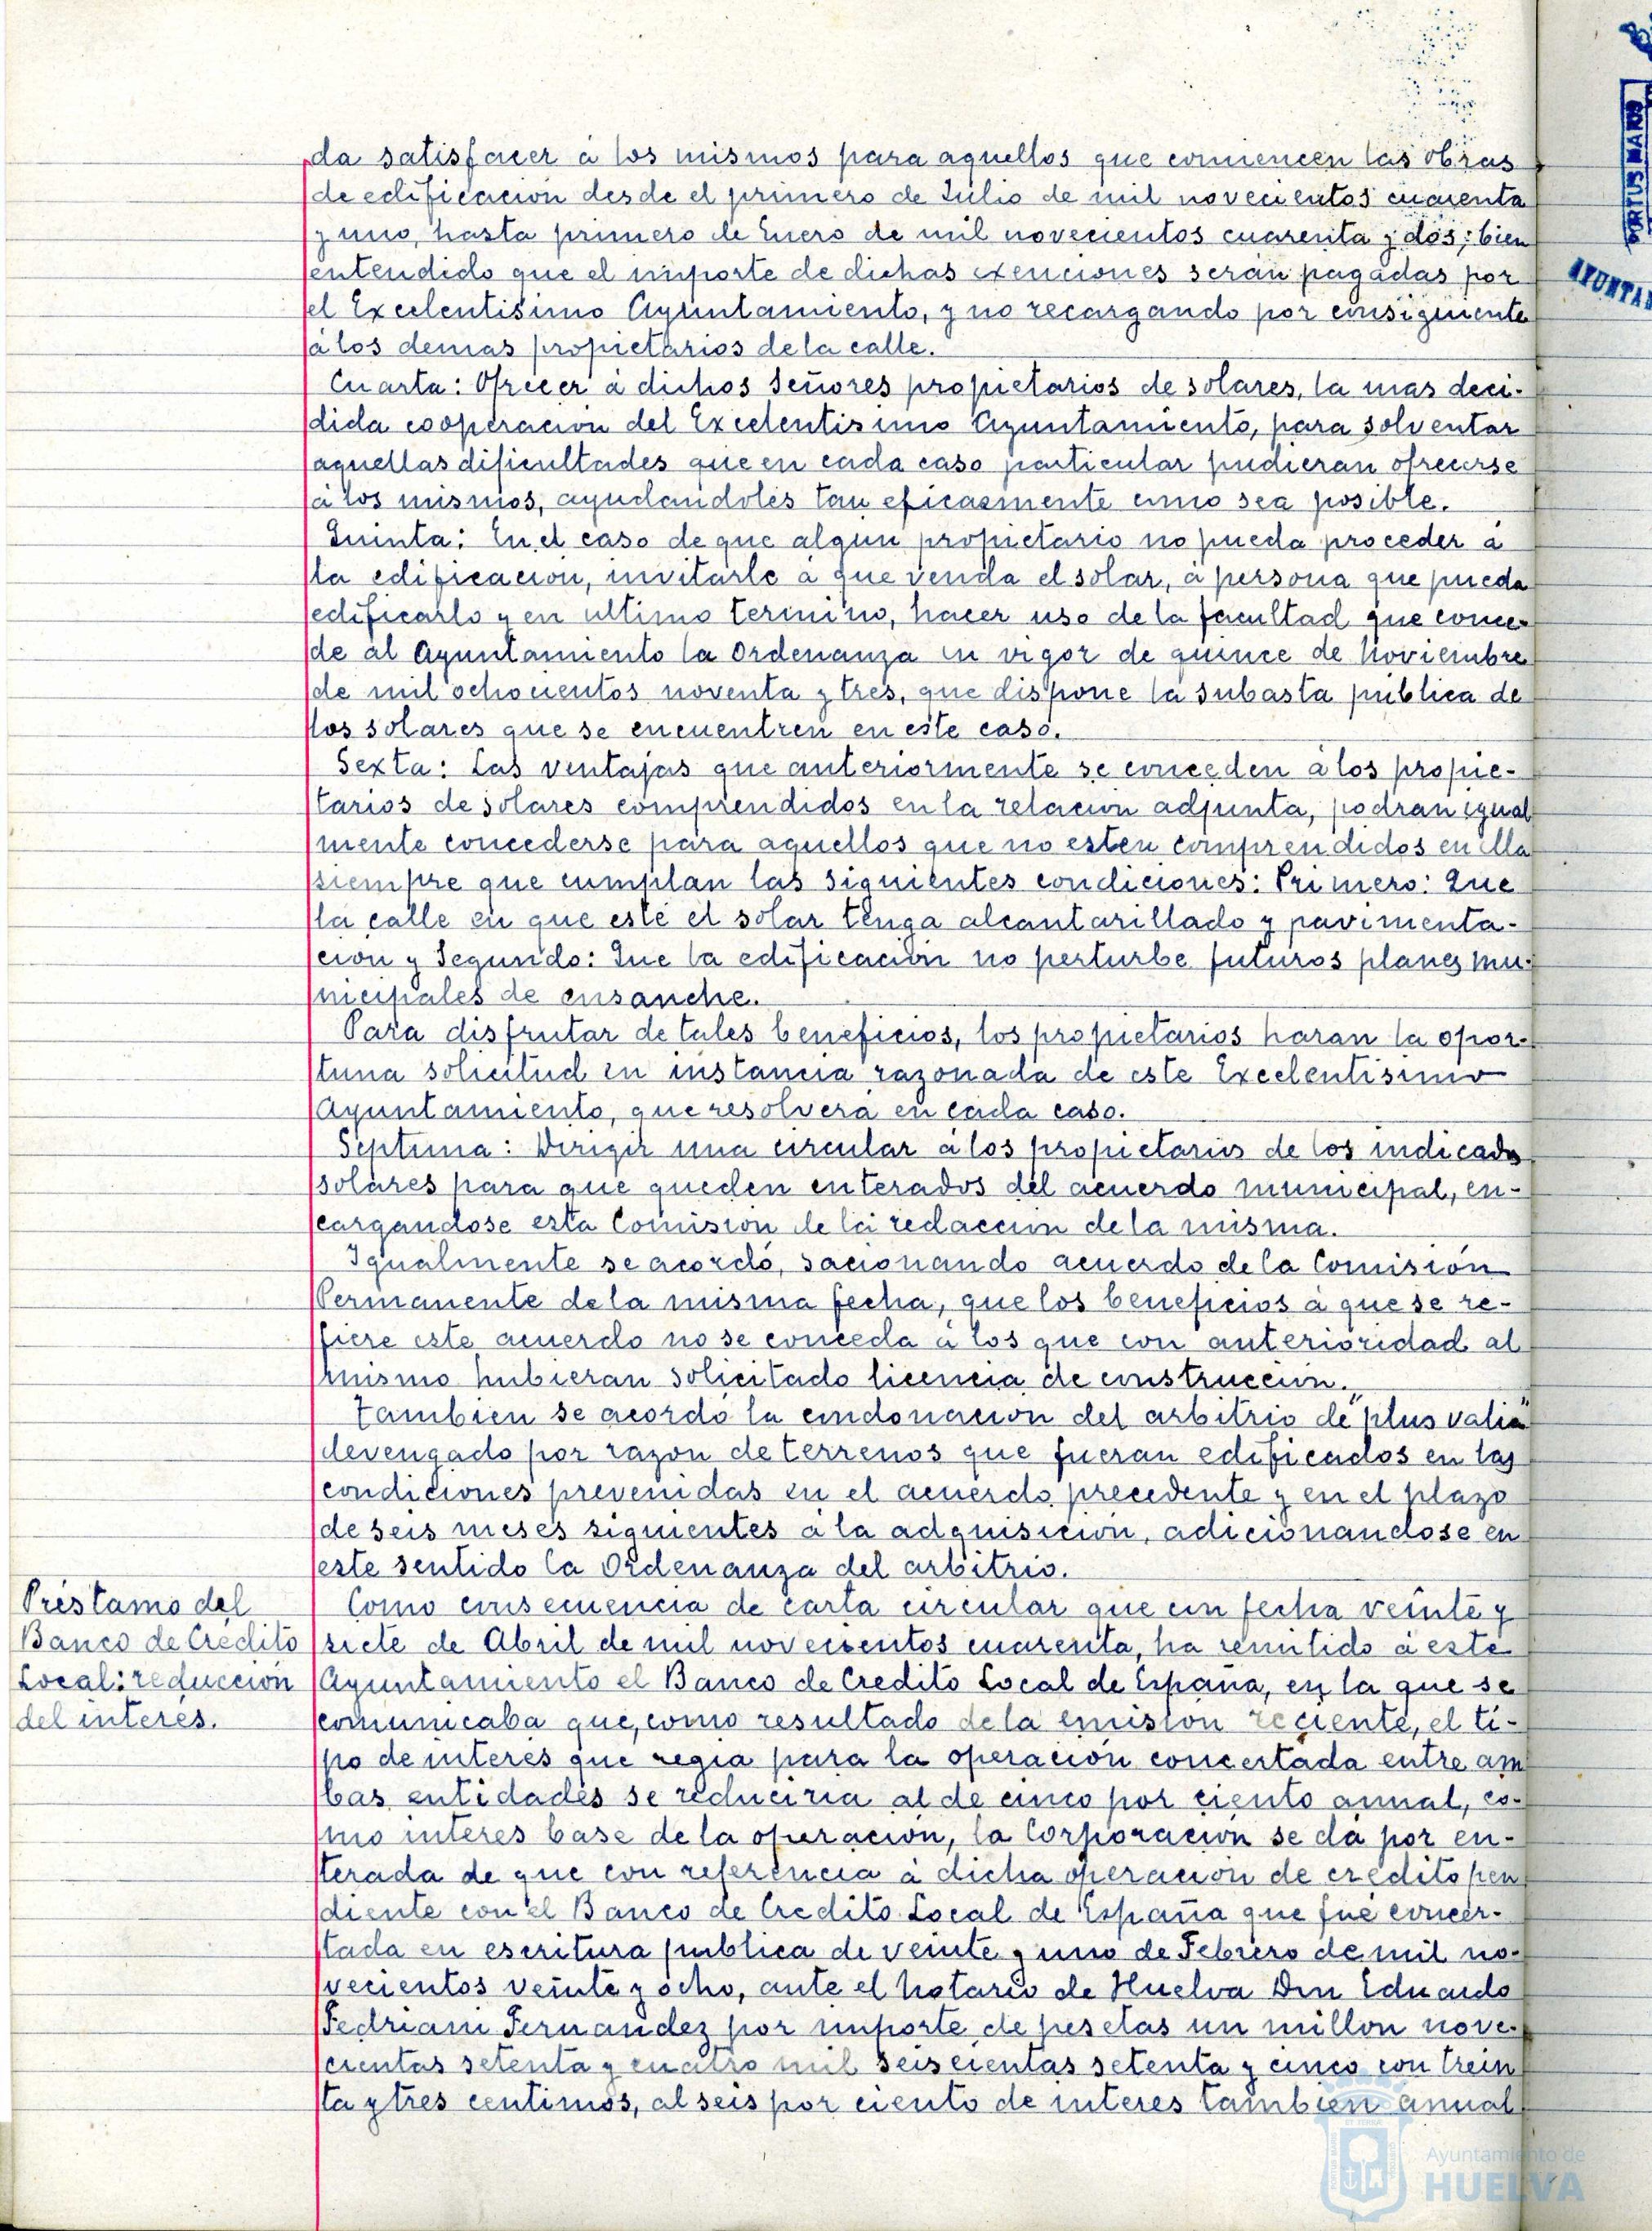 da satisfacer á los mismos para aquellos que comiencen las obras
de edificacion desde el primero de Julio de mil novecientos cuarenta
y uno, hasta primero de Enero de mil novecientos cuarenta y dos; bien
entendido que el importe de dichas exenciones serán pagadas por
el Excelentisimo Ayuntamiento, y no recargando por consiguiente
á los demas propietarios de la calle.
Cuarta: Ofrecer á dichos Señores propietarios de solares, la mas deci-
dida cooperacion del Excelentisimo Ayuntamiento, para solventar
aquellas dificultades que en cada caso particular pudieran ofrecerse
á los mismos, ayudandoles tan eficazmente como sea posible.
Quinta: En el caso de que algun propietario no pueda proceder á
la edificacion, invitarle á que venda el solar, á persona que pueda
edificarlo y en ultimo termino, hacer uso de la facultad que conce-
de al Ayuntamiento la Ordenanza en vigor de quince de Noviembre
de mil ochocientos noventa y tres, que dispone la subasta pública de
los solares que se encuentren en este caso.
Sexta: Las ventajas que anteriormente se conceden á los propie-
tarios de solares comprendidos en la relacion adjunta, podran igual
mente concederse para aquellos que no esten comprendidos en ella
siempre que cumplan las siguientes condiciones: Primero: Que
la calle en que esté el solar tenga alcantarillado y pavimenta-
cion y Segundo: Que la edificacion no perturbe futuros planes mu-
nicipales de ensanche.
Para disfrutar de tales beneficios, los propietarios haran la opor-
tuna solicitud en instancia razonada de este Excelentisimo
Ayuntamiento, que resolverá en cada caso.
Septima: Dirigir una circular á los propietarios de los indicados
solares para que queden enterados del acuerdo municipal, en-
cargandose esta Comision de la redaccion de la misma.
Igualmente se acordó, sacionando acuerdo de la Comisión
Permanente de la misma fecha, que los beneficios á que se re-
fiere este acuerdo no se conceda á los que con anterioridad al
mismo hubieran solicitado licencia de construccion.
Tambien se acordó la condonacion del arbitrio de "plus valia"
devengado por razon de terrenos que fueran edificados en las
condiciones prevenidas en el acuerdo precedente y en el plazo
de seis meses siguientes á la adquisicion, adicionandose en
este sentido la Ordenanza del arbitrio.
Préstamo del
Banco de Credito
Local: reduccion
del interés.
Como consecuencia de carta circular que con fecha veinte y
siete de Abril de mil novecientos cuarenta, ha remitido á este
Ayuntamiento el Banco de Credito Local de España, en la que se
comunicaba que, como resultado de la emision reciente, el ti-
po de interés que regia para la operación concertada entre am
bas entidades se reduciria al de cinco por ciento anual, co-
mo interes base de la operacion, la Corporacion se da por en-
terada de que con referencia á dicha operacion de credito pen
diente con el Banco de Credito Local de España que fué concer-
tada en escritura publica de veinte y uno de Febrero de mil no-
vecientos veinte y ocho, ante el Notario de Huelva Don Eduardo
Fedriani Fernandez por importe de pesetas un millon nove-
cientas setenta y cuatro mil seiscientas setenta y cinco con trein
ta y tres centimos, al seis por ciento de interes tambien anual
PORTUS MARIS
AYUNTA
Ayuntamiento de
HUELVA